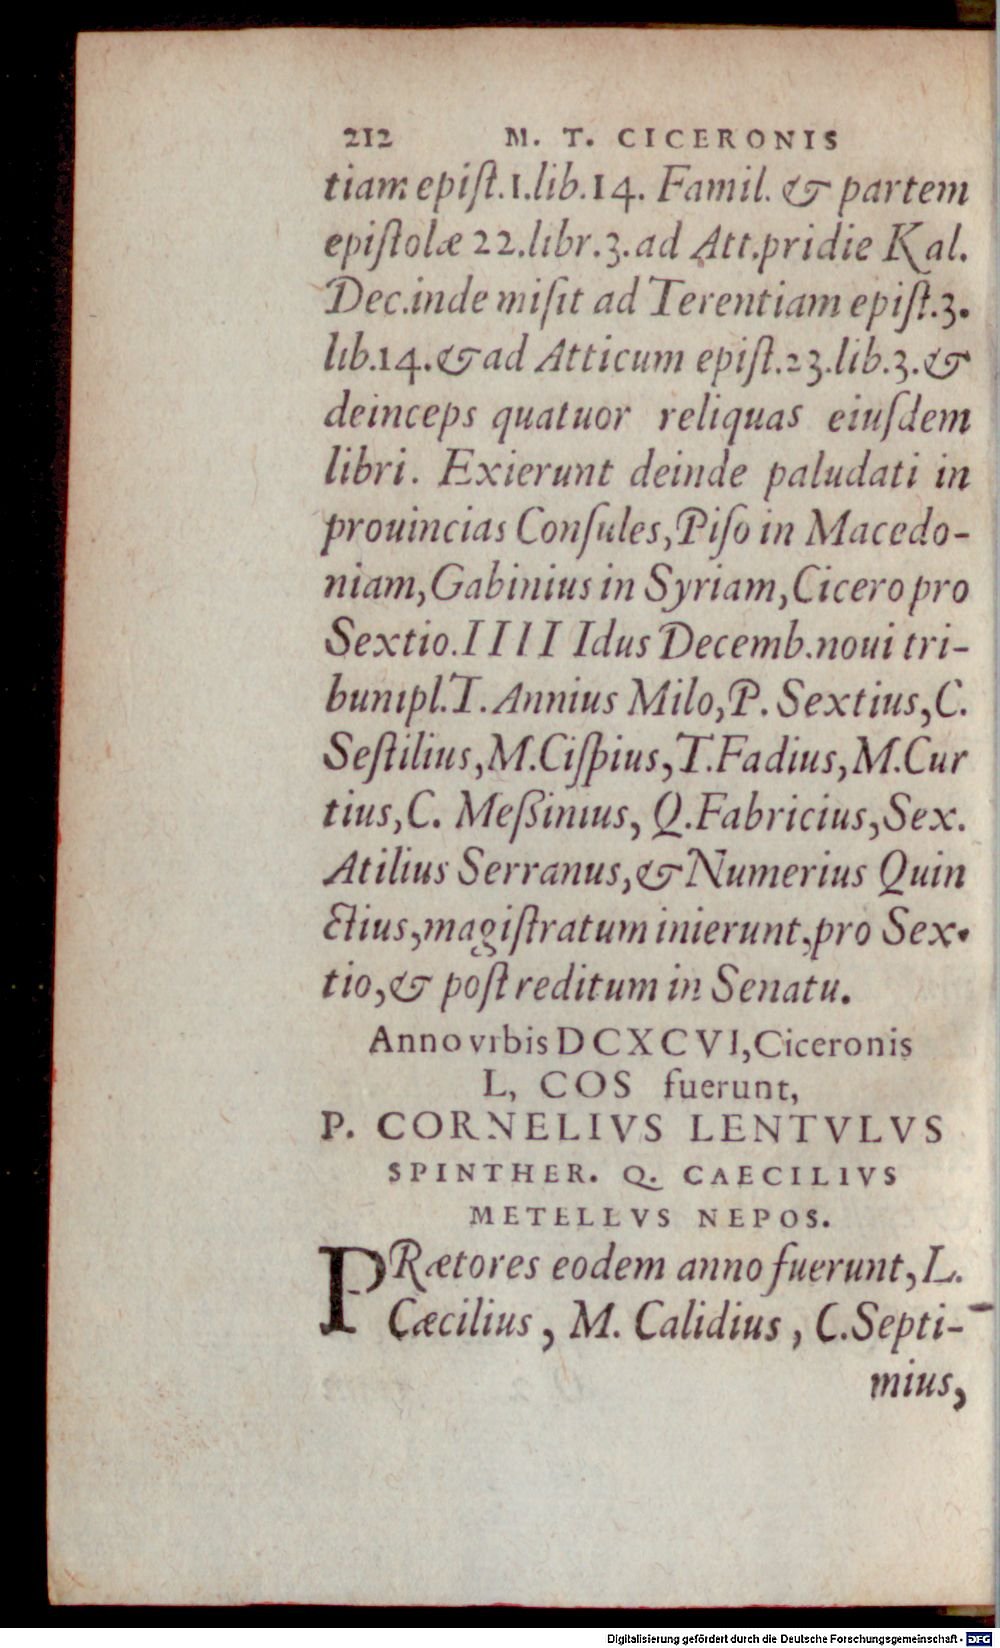 212 M. T. CICERONIS
tiam epiſt.1.lib.14. Famil. & partem
epiſtolæ 22.libr.3.ad Att.pridie Kal.
Dec.inde miſit ad Terentiam epiſt.3.
lib.14.& ad Atticum epiſt.23.lib.3.&
deinceps quatuor reliquas eiuſdem
libri. Exierunt deinde paludati in
prouincias Conſules, Piſo in Macedo-
niam, Gabinius in Syriam, Cicero pro
Sextio. IIII Idus Decemb.noui tri-
buni pl. T. Annius Milo, P. Sextius, C.
Seſtilius, M. Ciſpius, T. Fadius, M. Cur
tius, C. Meßinius, Q. Fabricius, Sex.
Atilius Serranus, & Numerius Quin
ctius, magiſtratum inierunt, pro Sex-
tio, & poſt reditum in Senatu.
Anno vrbis DCXCVI, Ciceronis
L, COS fuerunt,
P. CORNELIVS LENTVLVS
SPINTHER. Q. CAECILIVS
METELLVS NEPOS.
PRætores eodem anno fuerunt, L.
Cæcilius, M. Calidius, C. Septi-
mius,
Digitalisierung gefördert durch die Deutsche Forschungsgemeinschaft - DFG